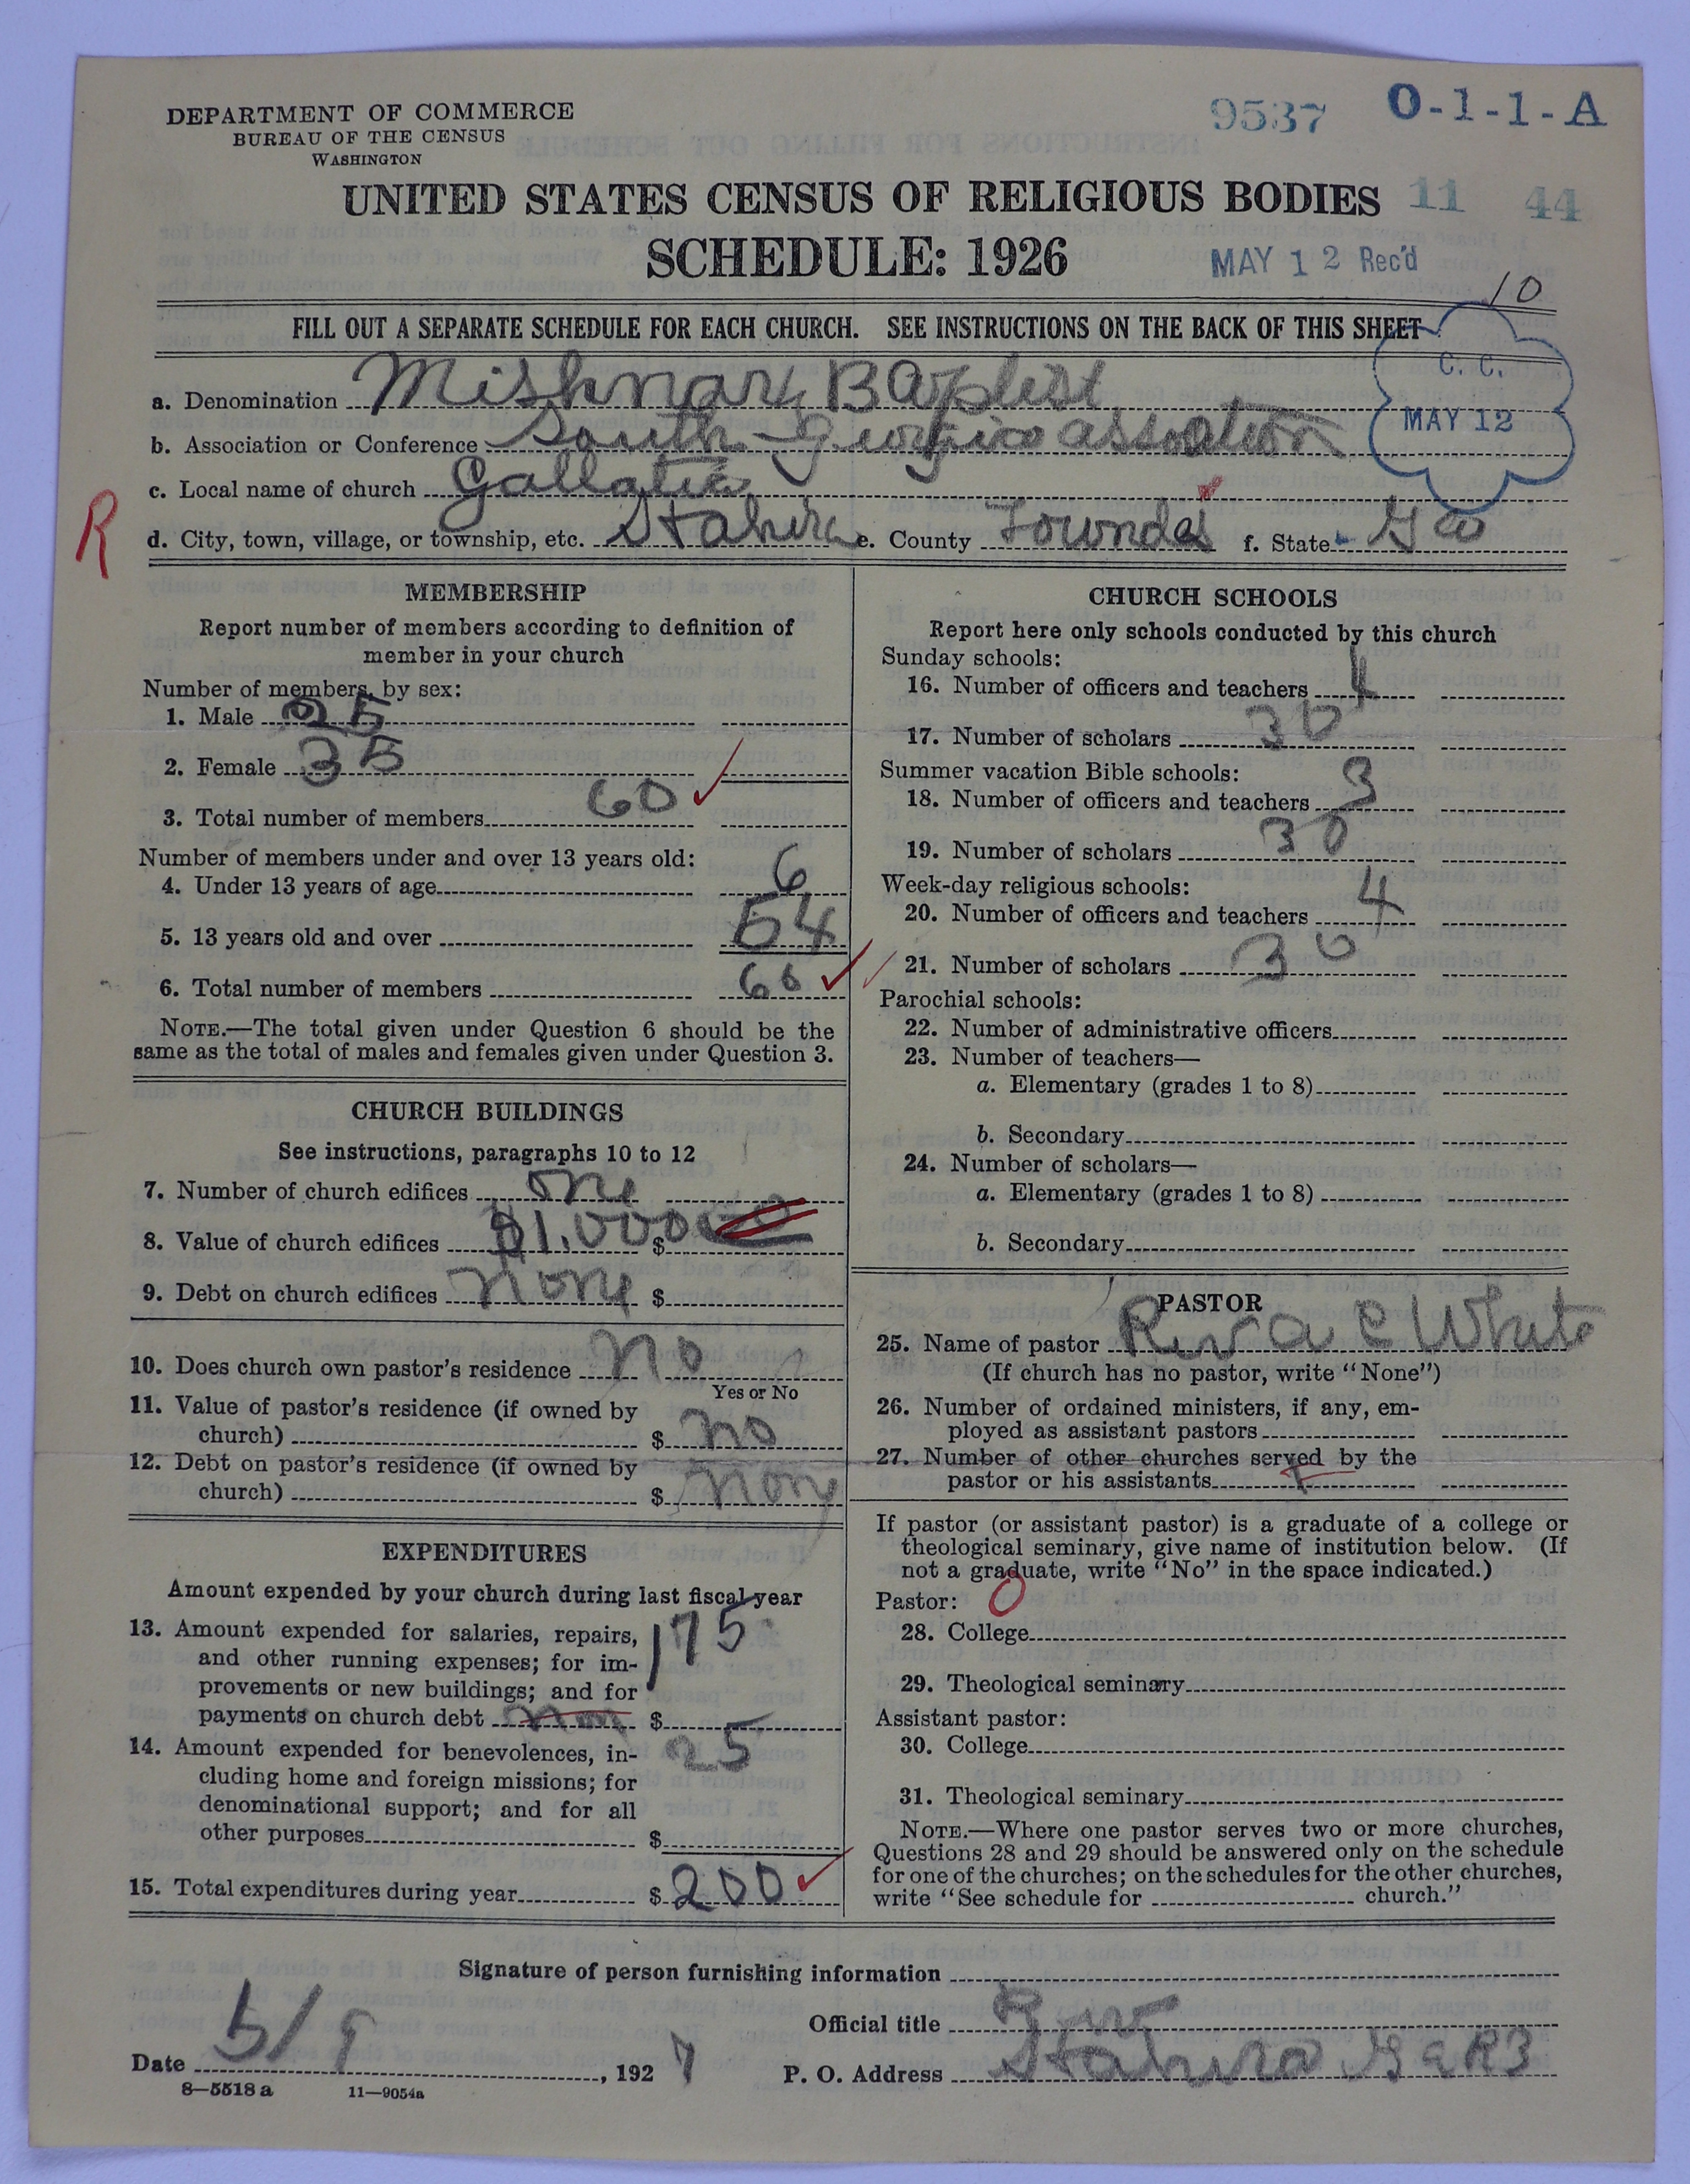 DEPARTMENT OF COMMERCE
BUREAU OF THE CENSUS
WASHINGTON
9537 O-1-1-A
UNITED STATES CENSUS OF RELIGIOUS BODIES 11 44
SCHEDULE: 1926
MAY 12 Rec'd
10
FILL OUT A SEPARATE SCHEDULE FOR EACH CHURCH. SEE INSTRUCTIONS ON THE BACK OF THIS SHEET
C. C.
MAY 12
a. Denomination Mishnary Baptist
b. Association or Conference South
c. Local name of church Gallatia
R
d. City, town, village, or township, etc. Stahira e. County Lowndes f. State Ga
MEMBERSHIP
Report number of members according to definition of
member in your church
Number of members, by sex:
1. Male 25
2. Female 35
3. Total number of members 60
Number of members under and over 13 years old:
4. Under 13 years of age 6
5. 13 years old and over 54
6. Total number of members 60
NOTE.—The total given under Question 6 should be the
same as the total of males and females given under Question 3.
CHURCH BUILDINGS
See instructions, paragraphs 10 to 12
7. Number of church edifices one
8. Value of church edifices $1.000 $
9. Debt on church edifices none $
10. Does church own pastor's residence no
Yes or No
11. Value of pastor's residence (if owned by
church) $ no
12. Debt on pastor's residence (if owned by
church) $ none
EXPENDITURES
Amount expended by your church during last fiscal year
13. Amount expended for salaries, repairs,
and other running expenses; for im-
provements or new buildings; and for
payments on church debt $ 175
14. Amount expended for benevolences, in-
cluding home and foreign missions; for
denominational support; and for all
other purposes $ 25
15. Total expenditures during year $ 200
CHURCH SCHOOLS
Report here only schools conducted by this church
Sunday schools:
16. Number of officers and teachers 4
17. Number of scholars 30
Summer vacation Bible schools:
18. Number of officers and teachers 3
19. Number of scholars 30
Week-day religious schools:
20. Number of officers and teachers 4
21. Number of scholars 30
Parochial schools:
22. Number of administrative officers
23. Number of teachers—
a. Elementary (grades 1 to 8)
b. Secondary
24. Number of scholars—
a. Elementary (grades 1 to 8)
b. Secondary
PASTOR
25. Name of pastor Rev a c White
(If church has no pastor, write "None")
26. Number of ordained ministers, if any, em-
ployed as assistant pastors
27. Number of other churches served by the
pastor or his assistants
If pastor (or assistant pastor) is a graduate of a college or
theological seminary, give name of institution below. (If
not a graduate, write "No" in the space indicated.)
Pastor: 0
28. College
29. Theological seminary
Assistant pastor:
30. College
31. Theological seminary
NOTE.—Where one pastor serves two or more churches,
Questions 28 and 29 should be answered only on the schedule
for one of the churches; on the schedules for the other churches,
write "See schedule for church."
Signature of person furnishing information
Official title
Date 5/9, 1927
P. O. Address Stahira Ga R3
8—5518 a 11—9054a